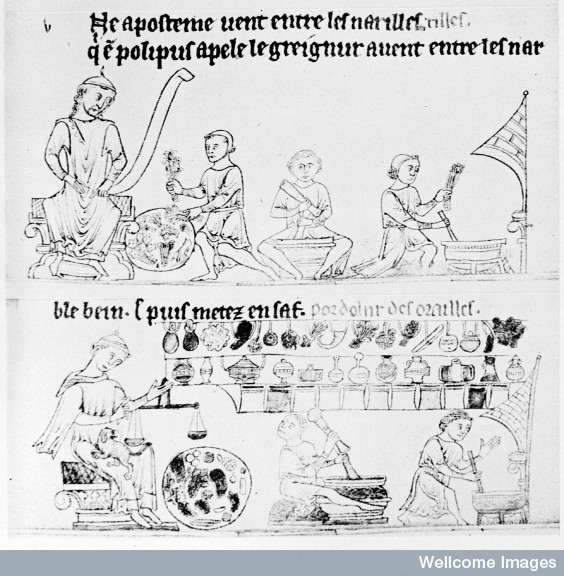 v
Ne aposteme uent entre les narilles. rilles.
q̃ ẽ polipus apele le greignur auent entre les nar
ble bein. ⁊ puis metez en saf. por dolur des orailles.
Wellcome Images